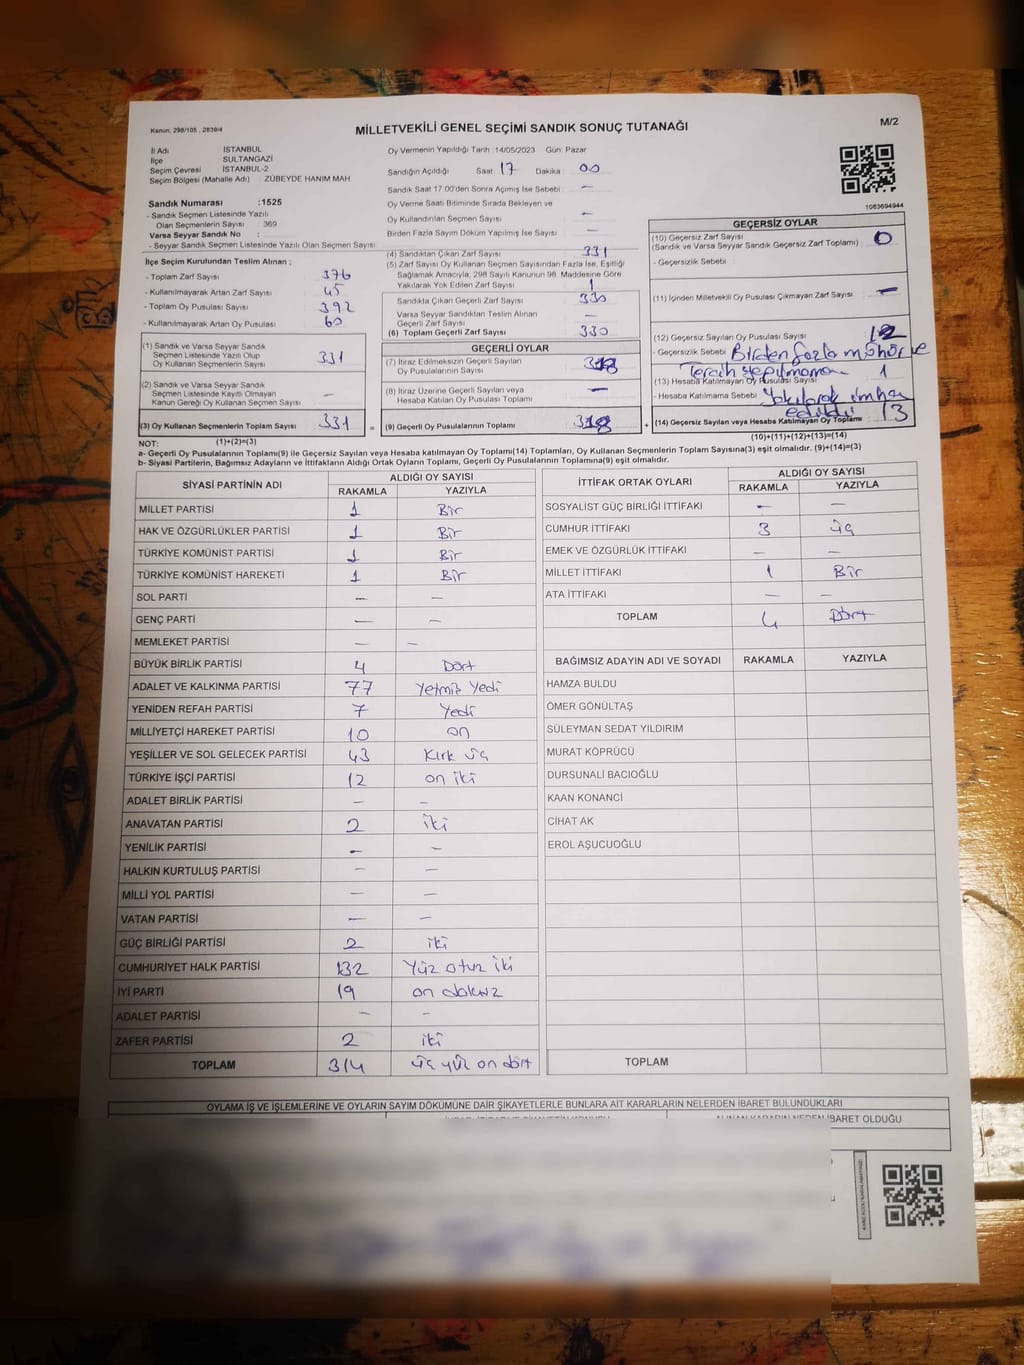 Kanun, 298/105 , 2839/4
MİLLETVEKİLİ GENEL SEÇİMİ SANDIK SONUÇ TUTANAĞI
M/2
İl Adı : İSTANBUL
İlçe : SULTANGAZİ
Seçim Çevresi : İSTANBUL-2
Seçim Bölgesi (Mahalle Adı) : ZÜBEYDE HANIM MAH.
Oy Vermenin Yapıldığı Tarih :14/05/2023 Gün: Pazar
Sandığın Açıldığı Saat 17 Dakika : 00
Sandık Saat 17:00'den Sonra Açılmış İse Sebebi : –
Oy Verme Saati Bitiminde Sırada Bekleyen ve
Oy Kullandırılan Seçmen Sayısı : –
Birden Fazla Sayım Döküm Yapılmış İse Sayısı : –
1063694944
Sandık Numarası :1525
- Sandık Seçmen Listesinde Yazılı
Olan Seçmenlerin Sayısı : 369
Varsa Seyyar Sandık No :
- Seyyar Sandık Seçmen Listesinde Yazılı Olan Seçmen Sayısı :
İlçe Seçim Kurulundan Teslim Alınan ;
- Toplam Zarf Sayısı : 376
- Kullanılmayarak Artan Zarf Sayısı : 45
- Toplam Oy Pusulası : 392
- Kullanılmayarak Artan Oy Pusulası : 60
(1) Sandık ve Varsa Seyyar Sandık
Seçmen Listesinde Yazılı Olup
Oy Kullanan Seçmenlerin Sayısı : 331
(2) Sandık ve Varsa Seyyar Sandık
Seçmen Listesinde Kayıtlı Olmayan
Kanun Gereği Oy Kullanan Seçmen Sayısı : –
(3) Oy Kullanan Seçmenlerin Toplam Sayısı : 331
(4) Sandıktan Çıkan Zarf Sayısı : 331
(5) Zarf Sayısı Oy Kullanan Seçmen Sayısından Fazla İse, Eşitliği
Sağlamak Amacıyla, 298 Sayılı Kanunun 98. Maddesine Göre
Yakılarak Yok Edilen Zarf Sayısı : 1
Sandıkta Çıkan Geçerli Zarf Sayısı : 330
Varsa Seyyar Sandıktan Teslim Alınan
Geçerli Zarf Sayısı : –
(6) Toplam Geçerli Zarf Sayısı : 330
GEÇERLİ OYLAR
(7) İtiraz Edilmeksizin Geçerli Sayılan
Oy Pusulalarının Sayısı : 318
(8) İtiraz Üzerine Geçerli Sayılan veya
Hesaba Katılan Oy Pusulası Toplamı : –
= (9) Geçerli Oy Pusulalarının Toplamı : 318 +
GEÇERSİZ OYLAR
(10) Geçersiz Zarf Sayısı : 0
(Sandık ve Varsa Seyyar Sandık Geçersiz Zarf Toplamı)
- Geçersizlik Sebebi :
(11) İçinden Milletvekili Oy Pusulası Çıkmayan Zarf Sayısı : –
(12) Geçersiz Sayılan Oy Pusulası Sayısı : 12
- Geçersizlik Sebebi : Birden fazla mühür ve
Tercih yapılmaması
(13) Hesaba Katılmayan Oy Pusulası Sayısı : 1
- Hesaba Katılmama Sebebi : Yakılarak imha
edildi
(14) Geçersiz Sayılan veya Hesaba Katılmayan Oy Toplamı : 13
NOT: (1)+(2)=(3)
(10)+(11)+(12)+(13)=(14)
a- Geçerli Oy Pusulalarının Toplamı(9) ile Geçersiz Sayılan veya Hesaba katılmayan Oy Toplamı(14) Toplamları, Oy Kullanan Seçmenlerin Toplam Sayısına(3) eşit olmalıdır. (9)+(14)=(3)
b- Siyasi Partilerin, Bağımsız Adayların ve İttifakların Aldığı Ortak Oyların Toplamı, Geçerli Oy Pusulalarının Toplamına(9) eşit olmalıdır.
SİYASİ PARTİNİN ADI ALDIĞI OY SAYISI
RAKAMLA YAZIYLA
MİLLET PARTİSİ 1 Bir
HAK VE ÖZGÜRLÜKLER PARTİSİ 1 Bir
TÜRKİYE KOMÜNİST PARTİSİ 1 Bir
TÜRKİYE KOMÜNİST HAREKETİ 1 Bir
SOL PARTİ – –
GENÇ PARTİ – –
MEMLEKET PARTİSİ – –
BÜYÜK BİRLİK PARTİSİ 4 Dört
ADALET VE KALKINMA PARTİSİ 77 Yetmiş Yedi
YENİDEN REFAH PARTİSİ 7 Yedi
MİLLİYETÇİ HAREKET PARTİSİ 10 on
YEŞİLLER VE SOL GELECEK PARTİSİ 43 Kırk üç
TÜRKİYE İŞÇİ PARTİSİ 12 on iki
ADALET BİRLİK PARTİSİ – –
ANAVATAN PARTİSİ 2 iki
YENİLİK PARTİSİ – –
HALKIN KURTULUŞ PARTİSİ – –
MİLLİ YOL PARTİSİ – –
VATAN PARTİSİ – –
GÜÇ BİRLİĞİ PARTİSİ 2 iki
CUMHURİYET HALK PARTİSİ 132 Yüz otuz iki
İYİ PARTİ 19 on dokuz
ADALET PARTİSİ – –
ZAFER PARTİSİ 2 iki
TOPLAM 314 üç yüz on dört
İTTİFAK ORTAK OYLARI ALDIĞI OY SAYISI
RAKAMLA YAZIYLA
SOSYALİST GÜÇ BİRLİĞİ İTTİFAKI – –
CUMHUR İTTİFAKI 3 üç
EMEK VE ÖZGÜRLÜK İTTİFAKI – –
MİLLET İTTİFAKI 1 Bir
ATA İTTİFAKI – –
TOPLAM 4 Dört
BAĞIMSIZ ADAYIN ADI VE SOYADI RAKAMLA YAZIYLA
HAMZA BULDU
ÖMER GÖNÜLTAŞ
SÜLEYMAN SEDAT YILDIRIM
MURAT KÖPRÜCÜ
DURSUNALİ BACIOĞLU
KAAN KONANCİ
CİHAT AK
EROL AŞUCUOĞLU
TOPLAM
OYLAMA İŞ VE İŞLEMLERİNE VE OYLARIN SAYIM DÖKÜMÜNE DAİR ŞİKAYETLERLE BUNLARA AİT KARARLARIN NELERDEN İBARET BULUNDUKLARI
ALINAN KARARIN NEDEN İBARET OLDUĞU